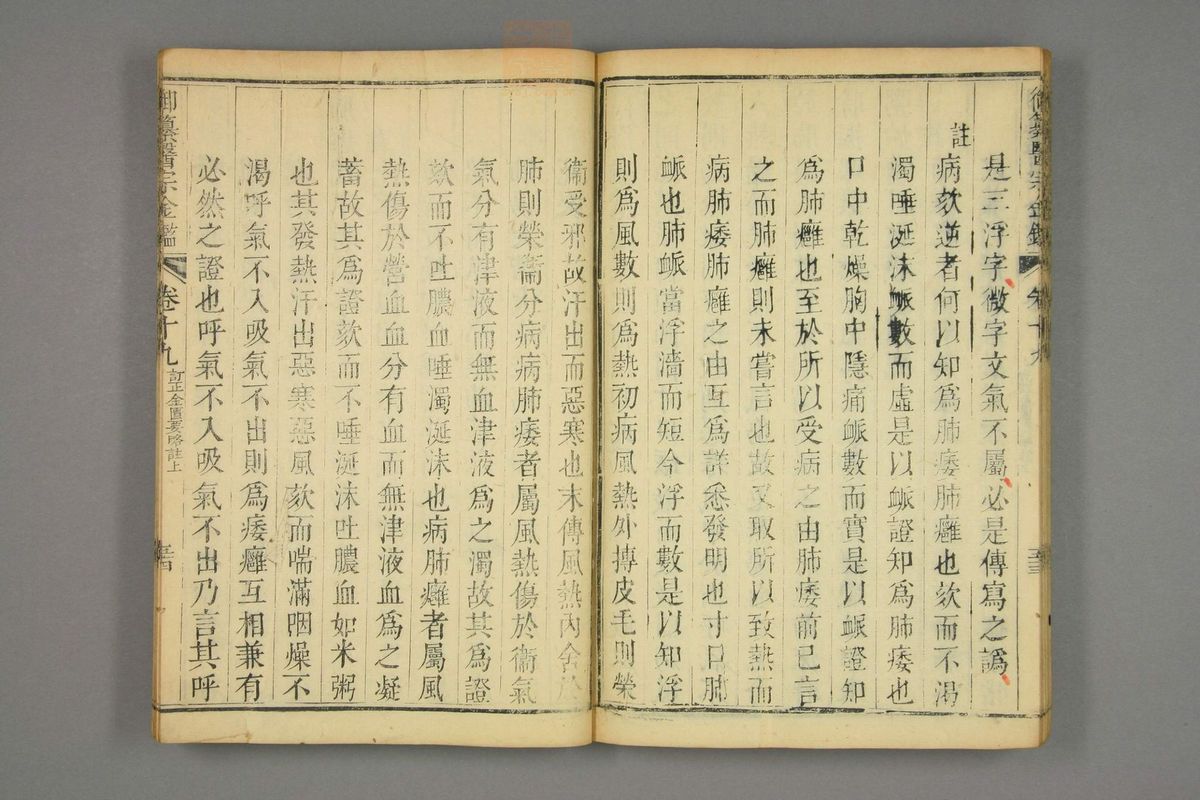 御纂醫宗金鑑 卷十九
是三浮字微字文氣不屬必是傳寫之譌
註
病欬逆者何以知為肺痿肺癰也欬而不渴
濁唾涎沫脈數而虛是以脈證知為肺痿也
口中乾燥胸中隱痛脈數而實是以脈證知
為肺癰也至於所以受病之由肺痿前已言
之而肺癰則未嘗言也故又取所以致熱而
病肺痿肺癰之由互為詳悉發明也寸口肺
脈也肺脈當浮濇而短今浮而數是以知浮
則為風數則為熱初病風熱外搏皮毛則榮
衞受邪故汗出而惡寒也末傳風熱內舍於
肺則榮衞分病病肺痿者屬風熱傷於衞氣
氣分有津液而無血津液為之濁故其為證
欬而不吐膿血唾濁涎沫也病肺癰者屬風
熱傷於營血血分有血而無津液血為之凝
蓄故其為證欬而不唾涎沫吐膿血如米粥
也其發熱汗出惡寒惡風欬而喘滿咽燥不
渴呼氣不入吸氣不出則為痿癰互相兼有
必然之證也呼氣不入吸氣不出乃言其呼
御纂醫宗金鑑 卷十九 訂正金匱要略註上